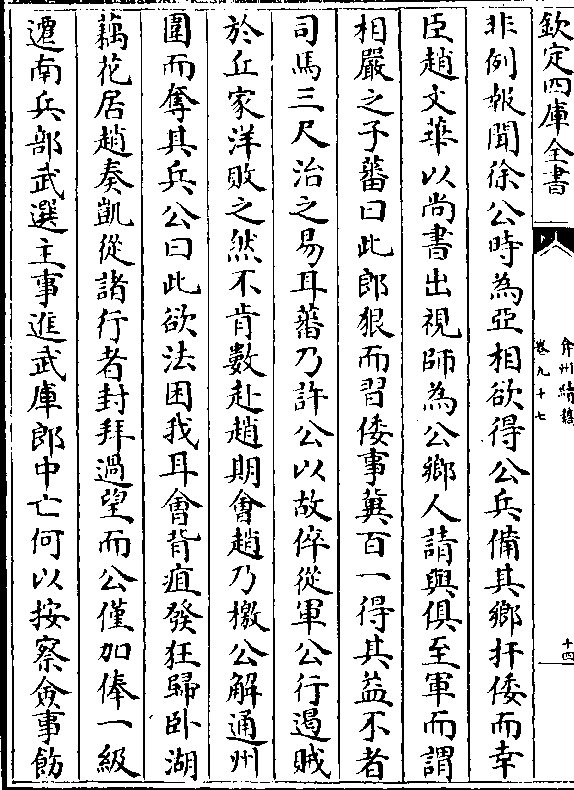 欽定四庫全書
弇州續稿
卷九十七
十四
非例報聞徐公時為亞相欲得公兵備其鄉扞倭而幸
臣趙文華以尚書出視師為公鄉人請與俱至軍而謂
相嚴之子蕃曰此郎狠而習倭事冀百一得其益不者
司馬三尺治之易耳蕃乃許公以故倅從軍公行遏賊
於丘家洋敗之然不肯數赴趙期會趙乃檄公解通州
圍而奪其兵公曰此欲法困我耳會背疽發狂歸卧湖
藕花居趙奏凱從諸行者封拜過望而公僅加俸一級
遷南兵部武選主事進武庫郎中亡何以按察僉事飭